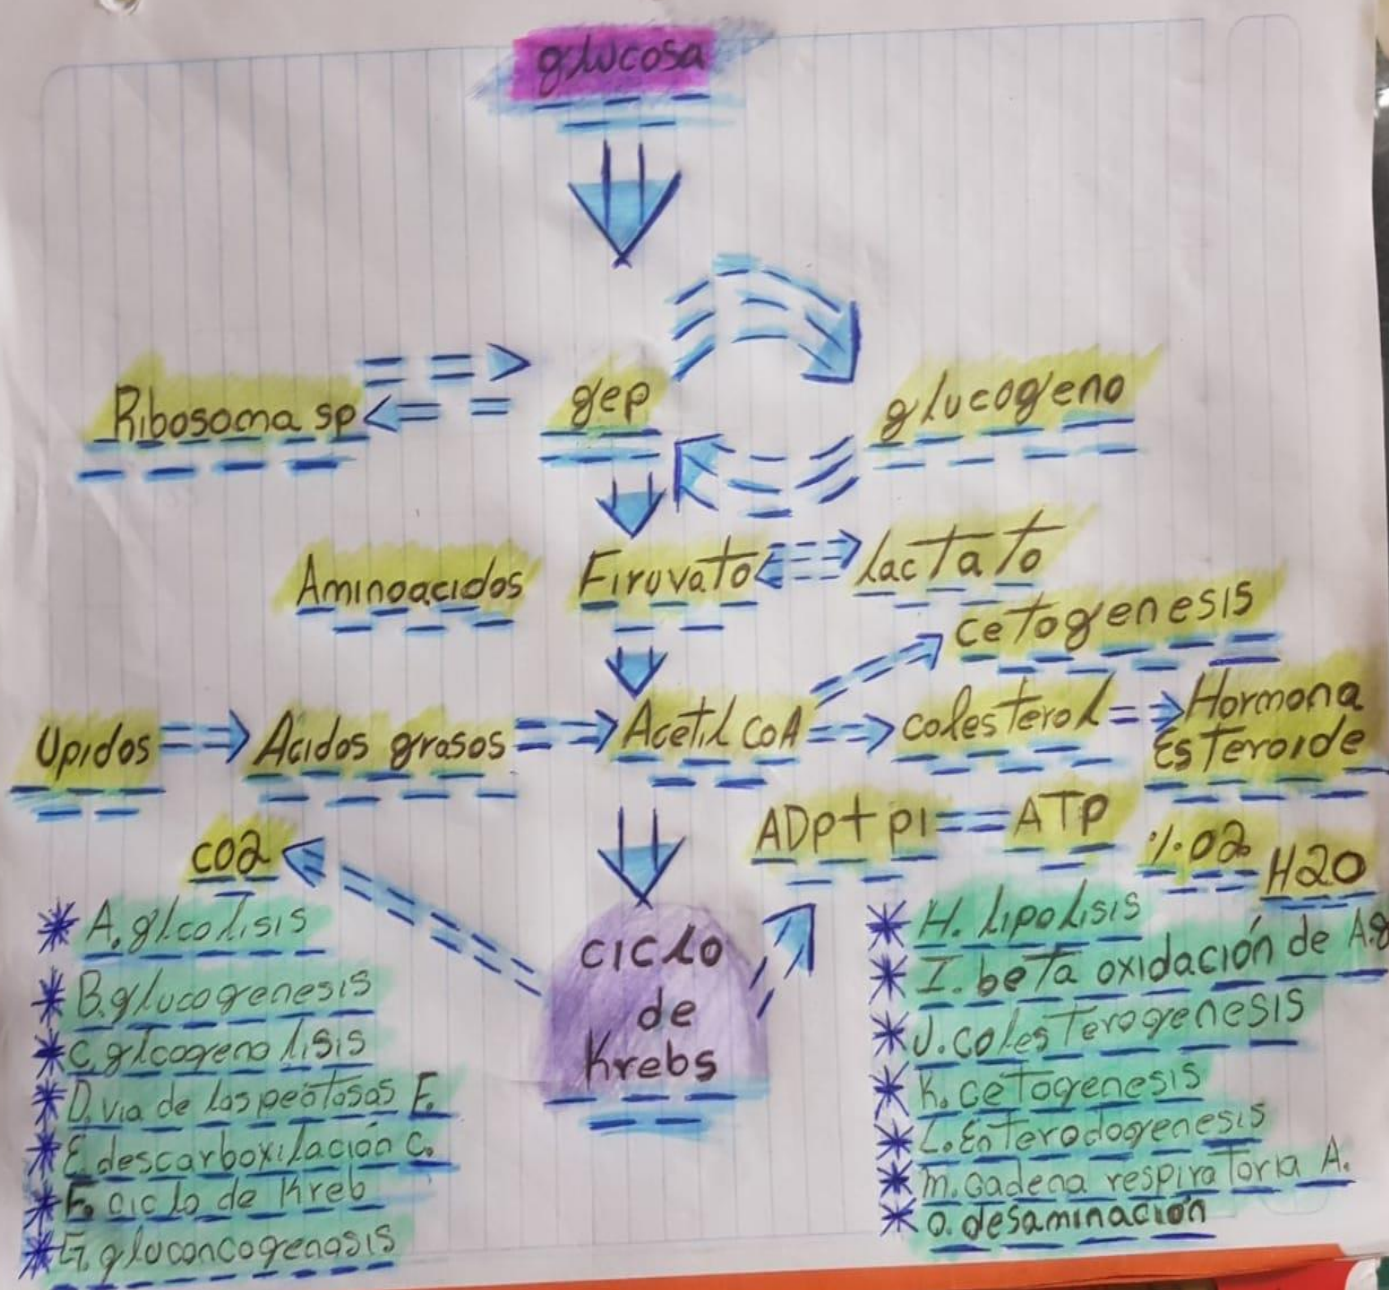 glucosa
Ribosoma sp
gep
glucogeno
Aminoacidos
Firuvato
Lactato
cetogenesis
Upidos
Acidos grasos
Acetil coA
colesterol
Hormona
Esteroide
co2
ADp+pi
ATp
%.02
H2O
ciclo
de
Krebs
A.glcolisis
B.glucogenesis
c.glcogenolisis
D.via de las peotosas F.
E.descarboxilación c.
F.ciclo de Kreb
G.gluconcogenosis
H.Lipolisis
I.beta oxidación de A.g
J.colesterogenesis
K.cetogenesis
L.Enterodogenesis
m.cadena respiratoria A.
o.desaminación